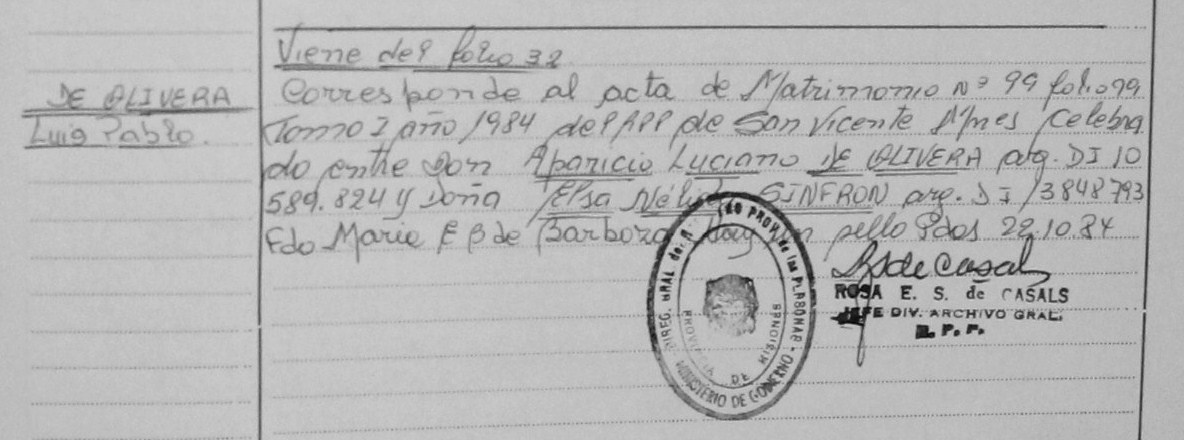 Viene del folio 32
DE OLIVERA
Luis Pablo.
Corresponde al acta de Matrimonio Nº 99 folio 99
Tomo I año 1984 del RPP de San Vicente Mnes Celebra
do entre don Aparicio Luciano DE OLIVERA arg. DI 10
589.824 y Doña Elsa Nélida SINFRON arg. DI 13848793
Fdo Maria E B de Barboza Hay un sello Pdas 22.10.84
ROSA E. S. de CASALS
JEFE DIV. ARCHIVO GRAL.
R. P. P.
DIREC. GRAL de R. PROV. de las PERSONAS - MINISTERIO DE GOBIERNO
PROVINCIA DE MISIONES